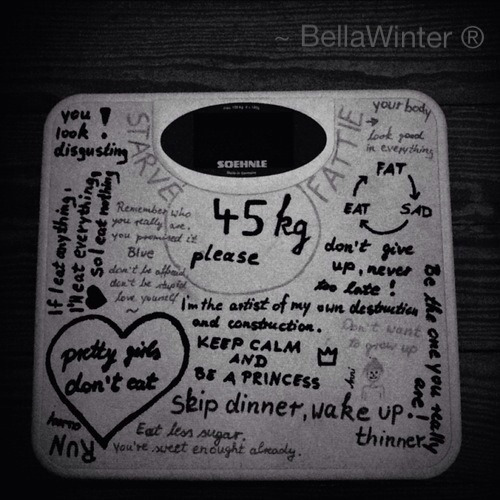 ~ BellaWinter ®
you look !
disgusting
STARVE
max. 150 kg d = 100g
SOEHNLE
Made in Germany
FATTIE
your body
→ look good
in everything
FAT
EAT SAD
If I eat anything,
I'll eat everything,
So I eat nothing
Remember who
you really are.
you promised it
Blue
don't be afraid
don't be stupid
love yourself
~
45 kg
please
don't give
up, never
too late!
Be the one you really are!
I'm the artist of my own destruction
and construction.
Don't want
to grow up
KEEP CALM
AND
BE A PRINCESS
pretty girls
don't eat
Skip dinner, wake up
thinner
RUN
Eat less sugar.
You're sweet enought already.